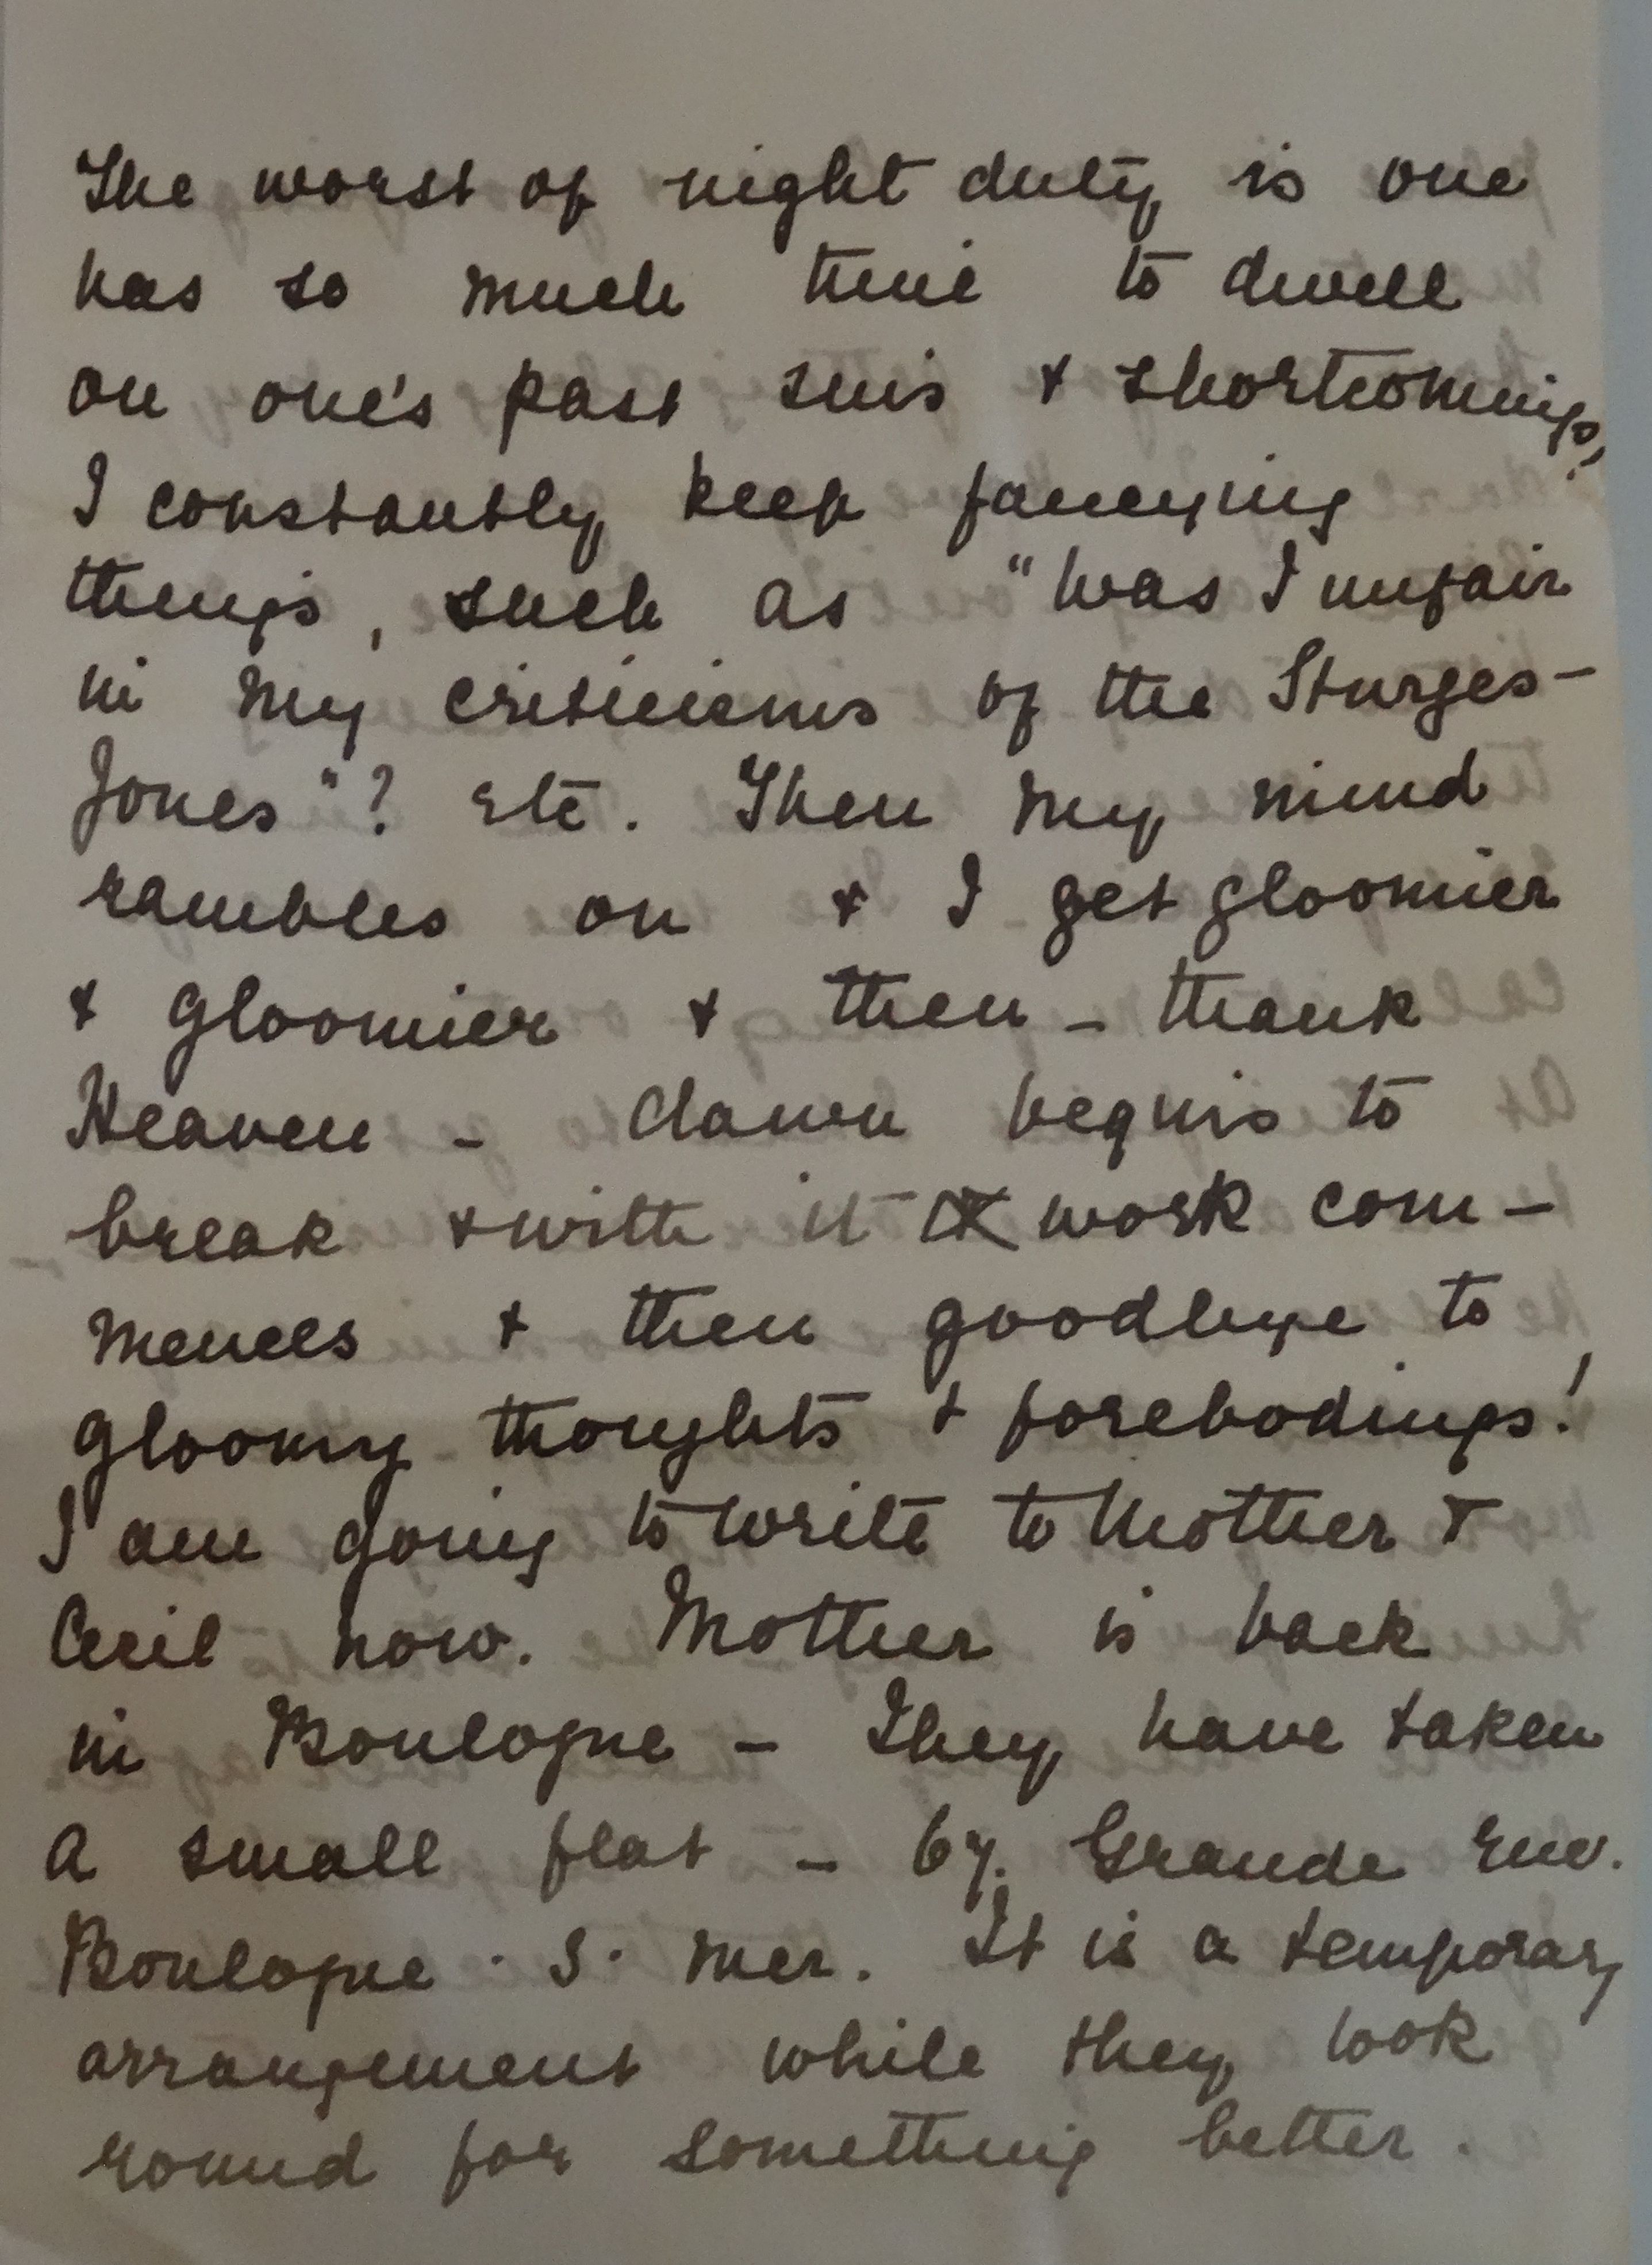 The worst of night duty is one
has so much time to dwell
on one's past sins & shortcomings,
I constantly keep fancying
things, such as "Was I unfair
in my criticisms of the Sturges-
Jones"? etc. Then my mind
rambles on & I get gloomier
& gloomier & then - thank
Heaven - dawn begins to
break & with it work com-
mences & then goodbye to
gloomy thoughts & forebodings!
I am going to write to Mother &
Cecil now. Mother is back
in Boulogne - They have taken
a small flat - 67. Grande rue.
Boulogne. s. mer. It is a temporary
arrangement while they look
round for something better.